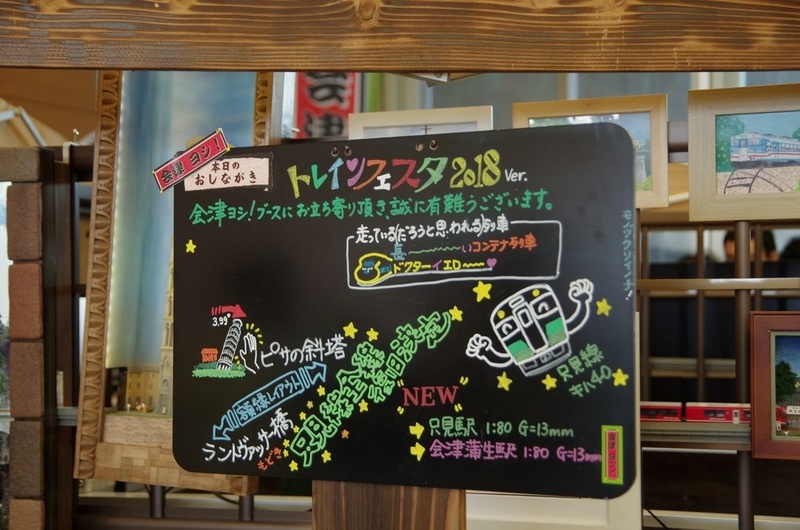 会津
会津 ヨシ!
本日の
おしながき
トレインフェスタ2018 Ver.
会津ヨシ!ブースにお立ち寄り頂き、誠に有難うございます。
走っている(だろうと思われる)列車
長〜〜〜〜いコンテナ列車
ドクターイエロ〜〜〜
3.99°
ピサの斜塔
額縁レイアウト
ランドヴァッサー橋
もどき
只見線全線復旧決定
只見線
キハ40
NEW
只見駅 1:80 G=13mm
会津蒲生駅 1:80 G=13mm
会津 ヨシ!